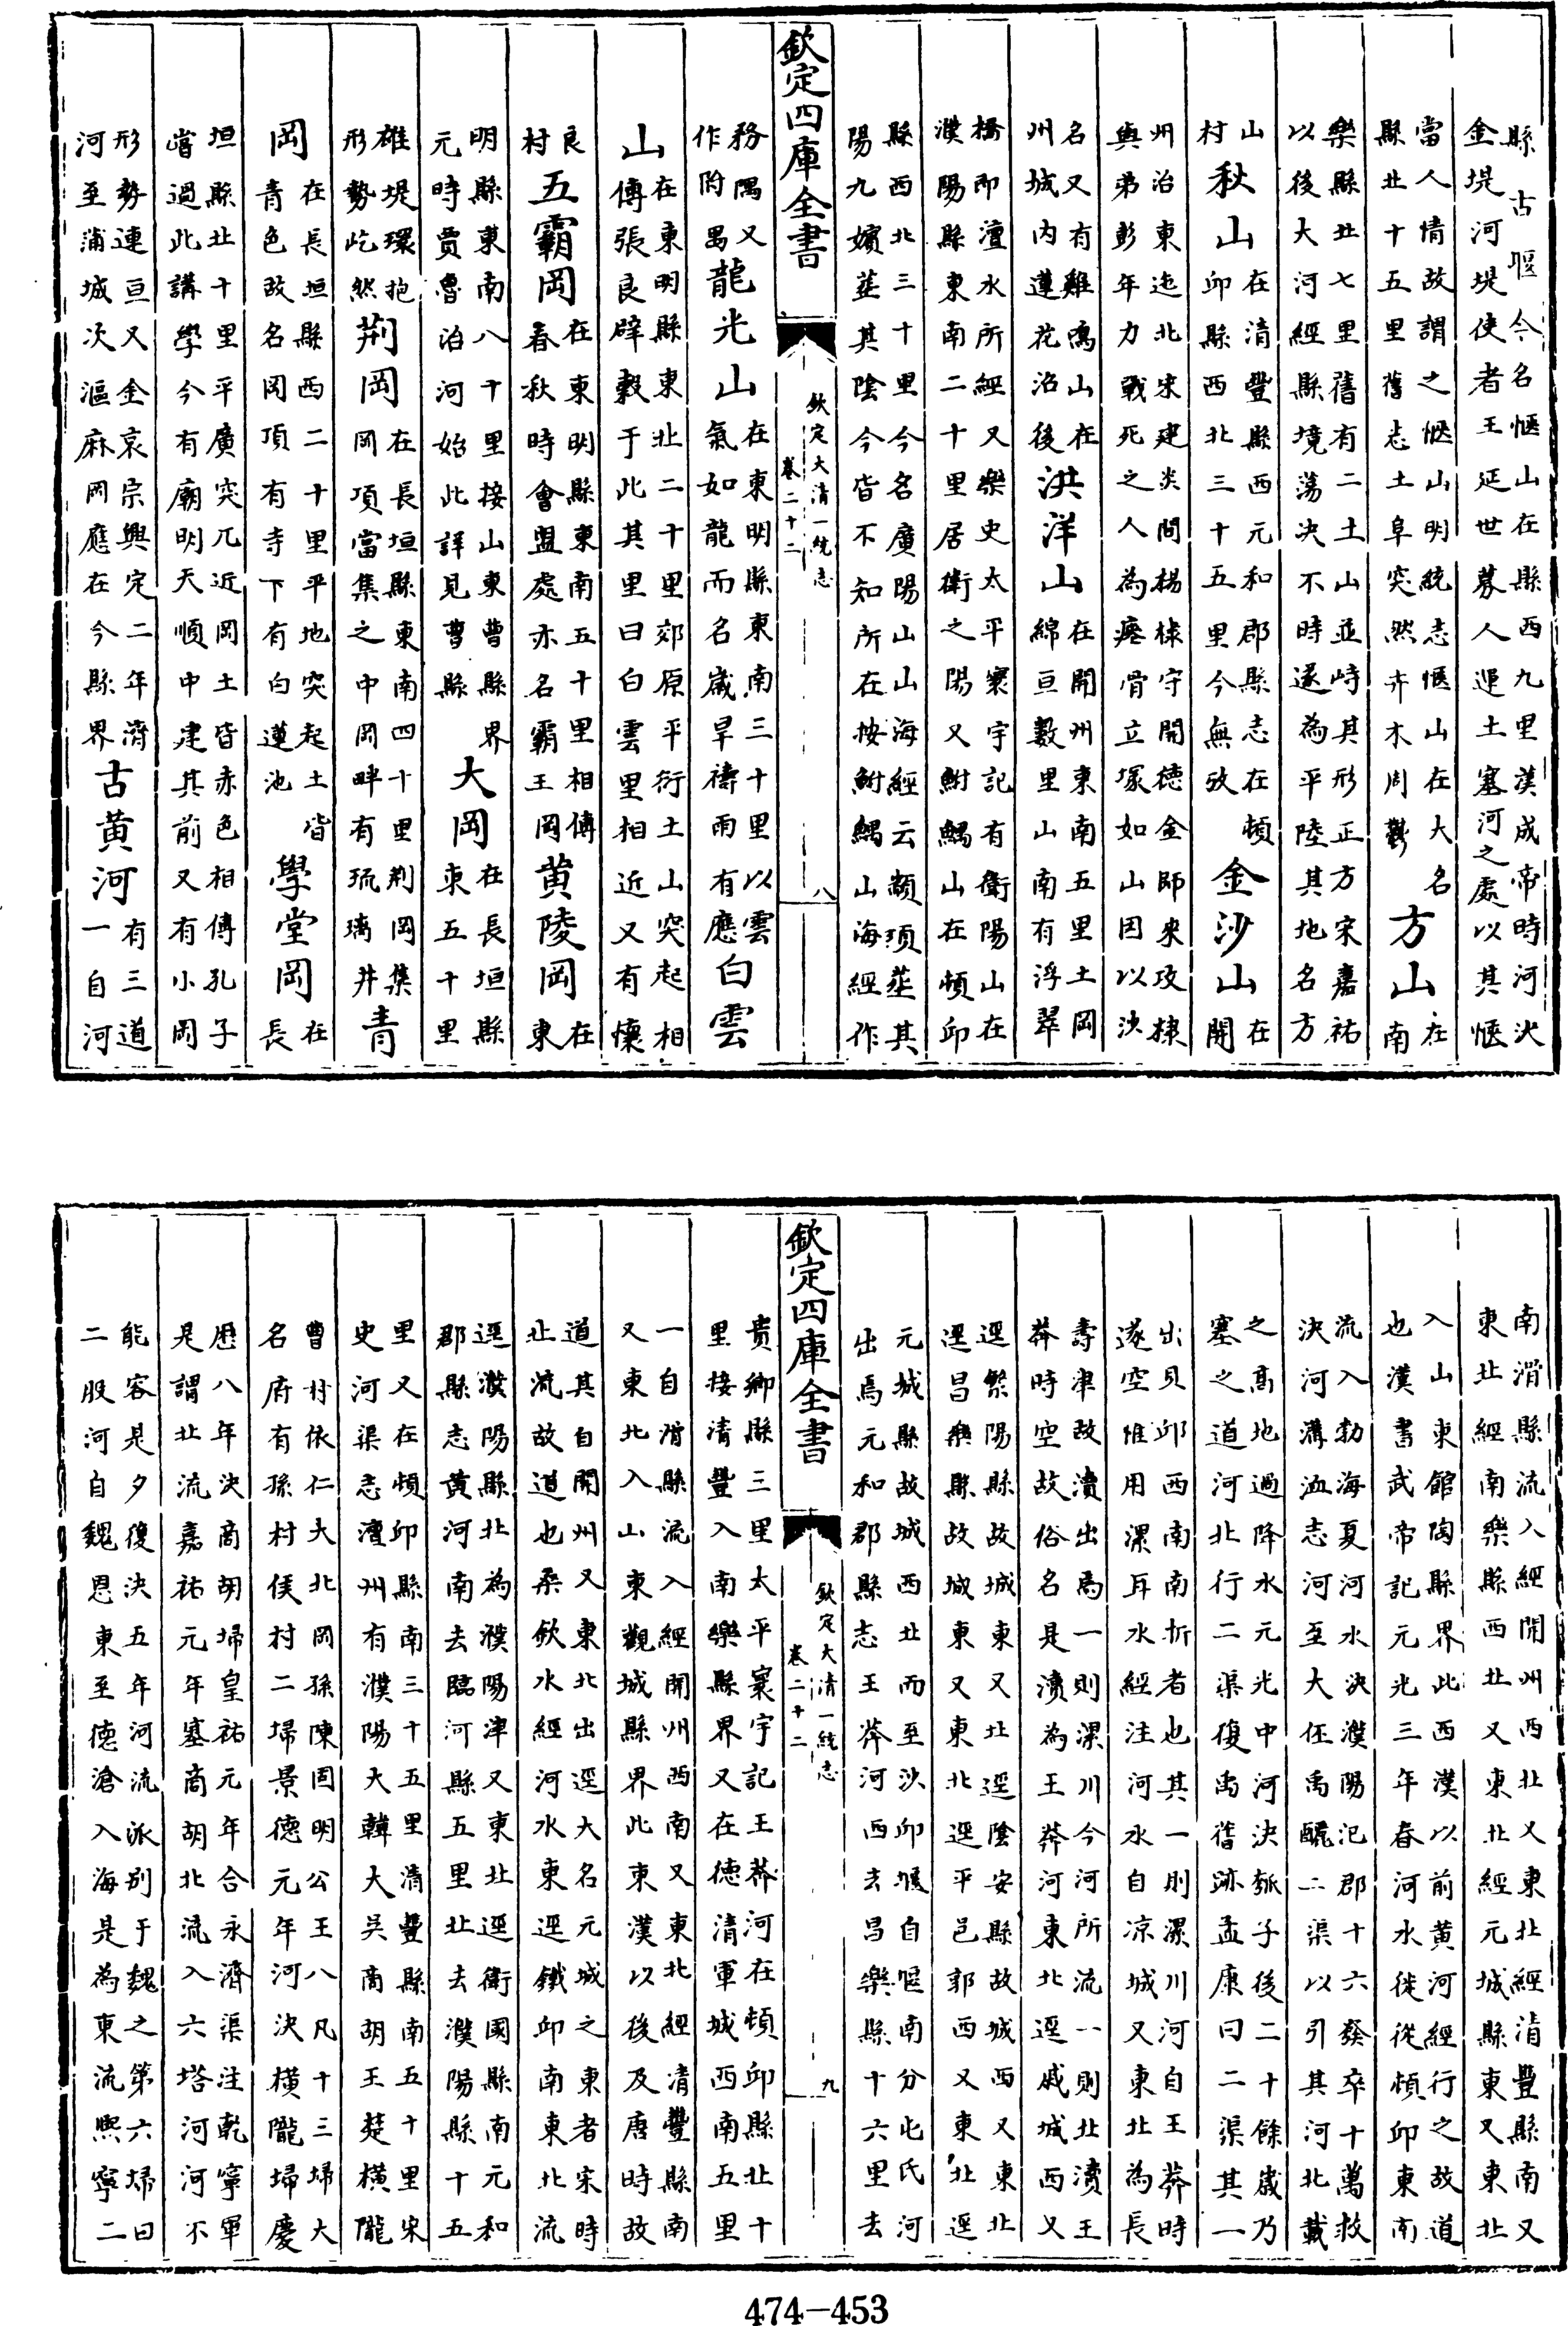 縣西九里漢成帝時河決
金堤河堤使者王延世募人運土塞河之處以其愜
當人情故謂之愜山明統志愜山在大名
縣北十五里舊志土阜突然卉木周鬱
方山在南
樂縣北七里舊有二土山並峙其形正方宋嘉祐
以後大河經縣境蕩決不時遂為平陸其地名方
山
村
秋山在清豐縣西元和郡縣志在頓
邱縣西北三十五里今無攷
金沙山在開
州治東迤北宋建炎間楊棣守開德金師來攻棣
與弟彭年力戰死之人為瘞骨立塚如山因以沙
名又有雞鳴山在
州城內蓮花沼後
洪洋山在開州東南五里土岡
綿亘數里山南有浮翠
橋即澶水所經又樂史太平寰宇記有衛陽山在
濮陽縣東南二十里居衛之陽又鮒鰅山在頓邱
縣西北三十里今名廣陽山山海經云顓頊葬其
陽九嬪葬其陰今皆不知所在按鮒鰅山海經作
欽定四庫全書
欽定大清一統志
卷二十二
八
務隅又
作附禺
龍光山在東明縣東南三十里以雲
氣如龍而名歲旱禱雨有應
白雲
山在東明縣東北二十里郊原平衍土山突起相
傳張良辟穀于此其里曰白雲里相近又有懷
良
村
五霸岡在東明縣東南五十里相傳
春秋時會盟處亦名霸王岡
黃陵岡在東
明縣東南八十里接山東曹縣界
元時賈魯治河始此詳見曹縣
大岡在長垣縣
東五十里
雄堤環抱
形勢屹然
荊岡在長垣縣東南四十里荊岡集
岡項當集之中岡畔有琉璃井
青
岡在長垣縣西二十里平地突起土皆
青色故名岡頂有寺下有白蓮池
學堂岡在
長
垣縣北十里平廣突兀近岡土皆赤色相傳孔子
嘗過此講學今有廟明天順中建其前又有小岡
形勢連亘又金哀宗興定二年濟
河至蒲城次漚麻岡應在今縣界
古黃河有三道
一自河
南滑縣流入經開州西北又東北經清豐縣南又
東北經南樂縣西北又東北經元城縣東又東北
入山東館陶縣界此西漢以前黃河經行之故道
也漢書武帝記元光三年春河水徙從頓邱東南
流入勃海夏河水決濮陽汜郡十六發卒十萬救
決河溝洫志河至大伾禹釃二渠以引其河北載
之高地過降水元光中河決瓠子後二十餘歲乃
塞之道河北行二渠復禹舊跡孟康曰二渠其一
出貝邱西南南折者也其一則漯川河自王莽時
遂空惟用漯耳水經注河水自涼城又東北為長
壽津故瀆出焉一則漯川今河所流一則北瀆王
莽時空故俗名是瀆為王莽河東北逕戚城西又
逕繁陽縣故城東又北逕陰安縣故城西又東北
逕昌樂縣故城東又東北逕平邑郭西又東北逕
元城縣故城西北而至沙邱堰自堰南分屯氏河
出焉元和郡縣志王莽河西去昌樂縣十六里去
欽定四庫全書
欽定大清一統志
卷二十二
九
貴鄉縣三里太平寰宇記王莽河在頓邱縣北十
里接清豐入南樂縣界又在德清軍城西南五里
一自滑縣流入經開州西南又東北經清豐縣南
又東北入山東觀城縣界此東漢以後及唐時故
道其自開州又東北出逕大名元城之東者宋時
北流故道也桑欽水經河水東逕鐵邱南東北流
逕濮陽縣北為濮陽津又東北逕衛國縣南元和
郡縣志黃河南去臨河縣五里北去濮陽縣十五
里又在頓邱縣南三十五里清豐縣南五十里宋
史河渠志澶州有濮陽大韓大吳商胡王楚橫隴
曹村依仁大北岡孫陳固明公王八凡十三埽大
名府有孫村侯村二埽景德元年河決橫隴埽慶
歷八年決商胡埽皇祐元年合永濟渠注乾寧軍
是謂北流嘉祐元年塞商胡北流入六塔河不
能容是夕復決五年河流派別于魏之第六埽曰
二股河自魏恩東至德滄入海是為東流熙寧二
474-453